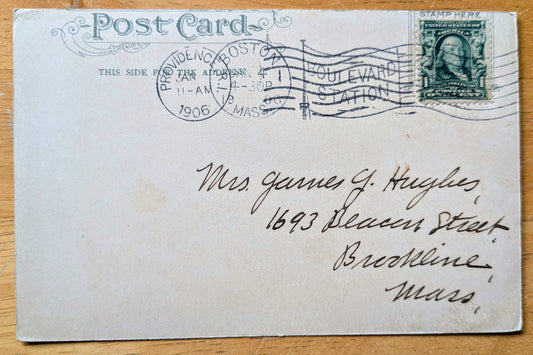 Post Card
THIS SIDE FOR THE ADDRESS
STAMP HERE
PROVIDENCE, R.I.
JAN
11-AM
1906
BOSTON
4
4-30P
MASS.
1
BOULEVARD
STATION
Mrs. James J. Hughes,
1693 Beacon Street,
Brookline,
Mass,